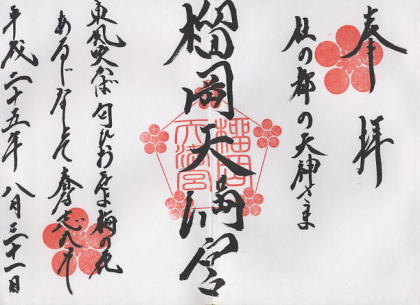 奉拝
杜の都の天神さま
榴岡天満宮
榴岡
天満宮
東風吹かば匂ひおこせよ梅の花
あるじなしとて春
平成二十五年八月三十一日